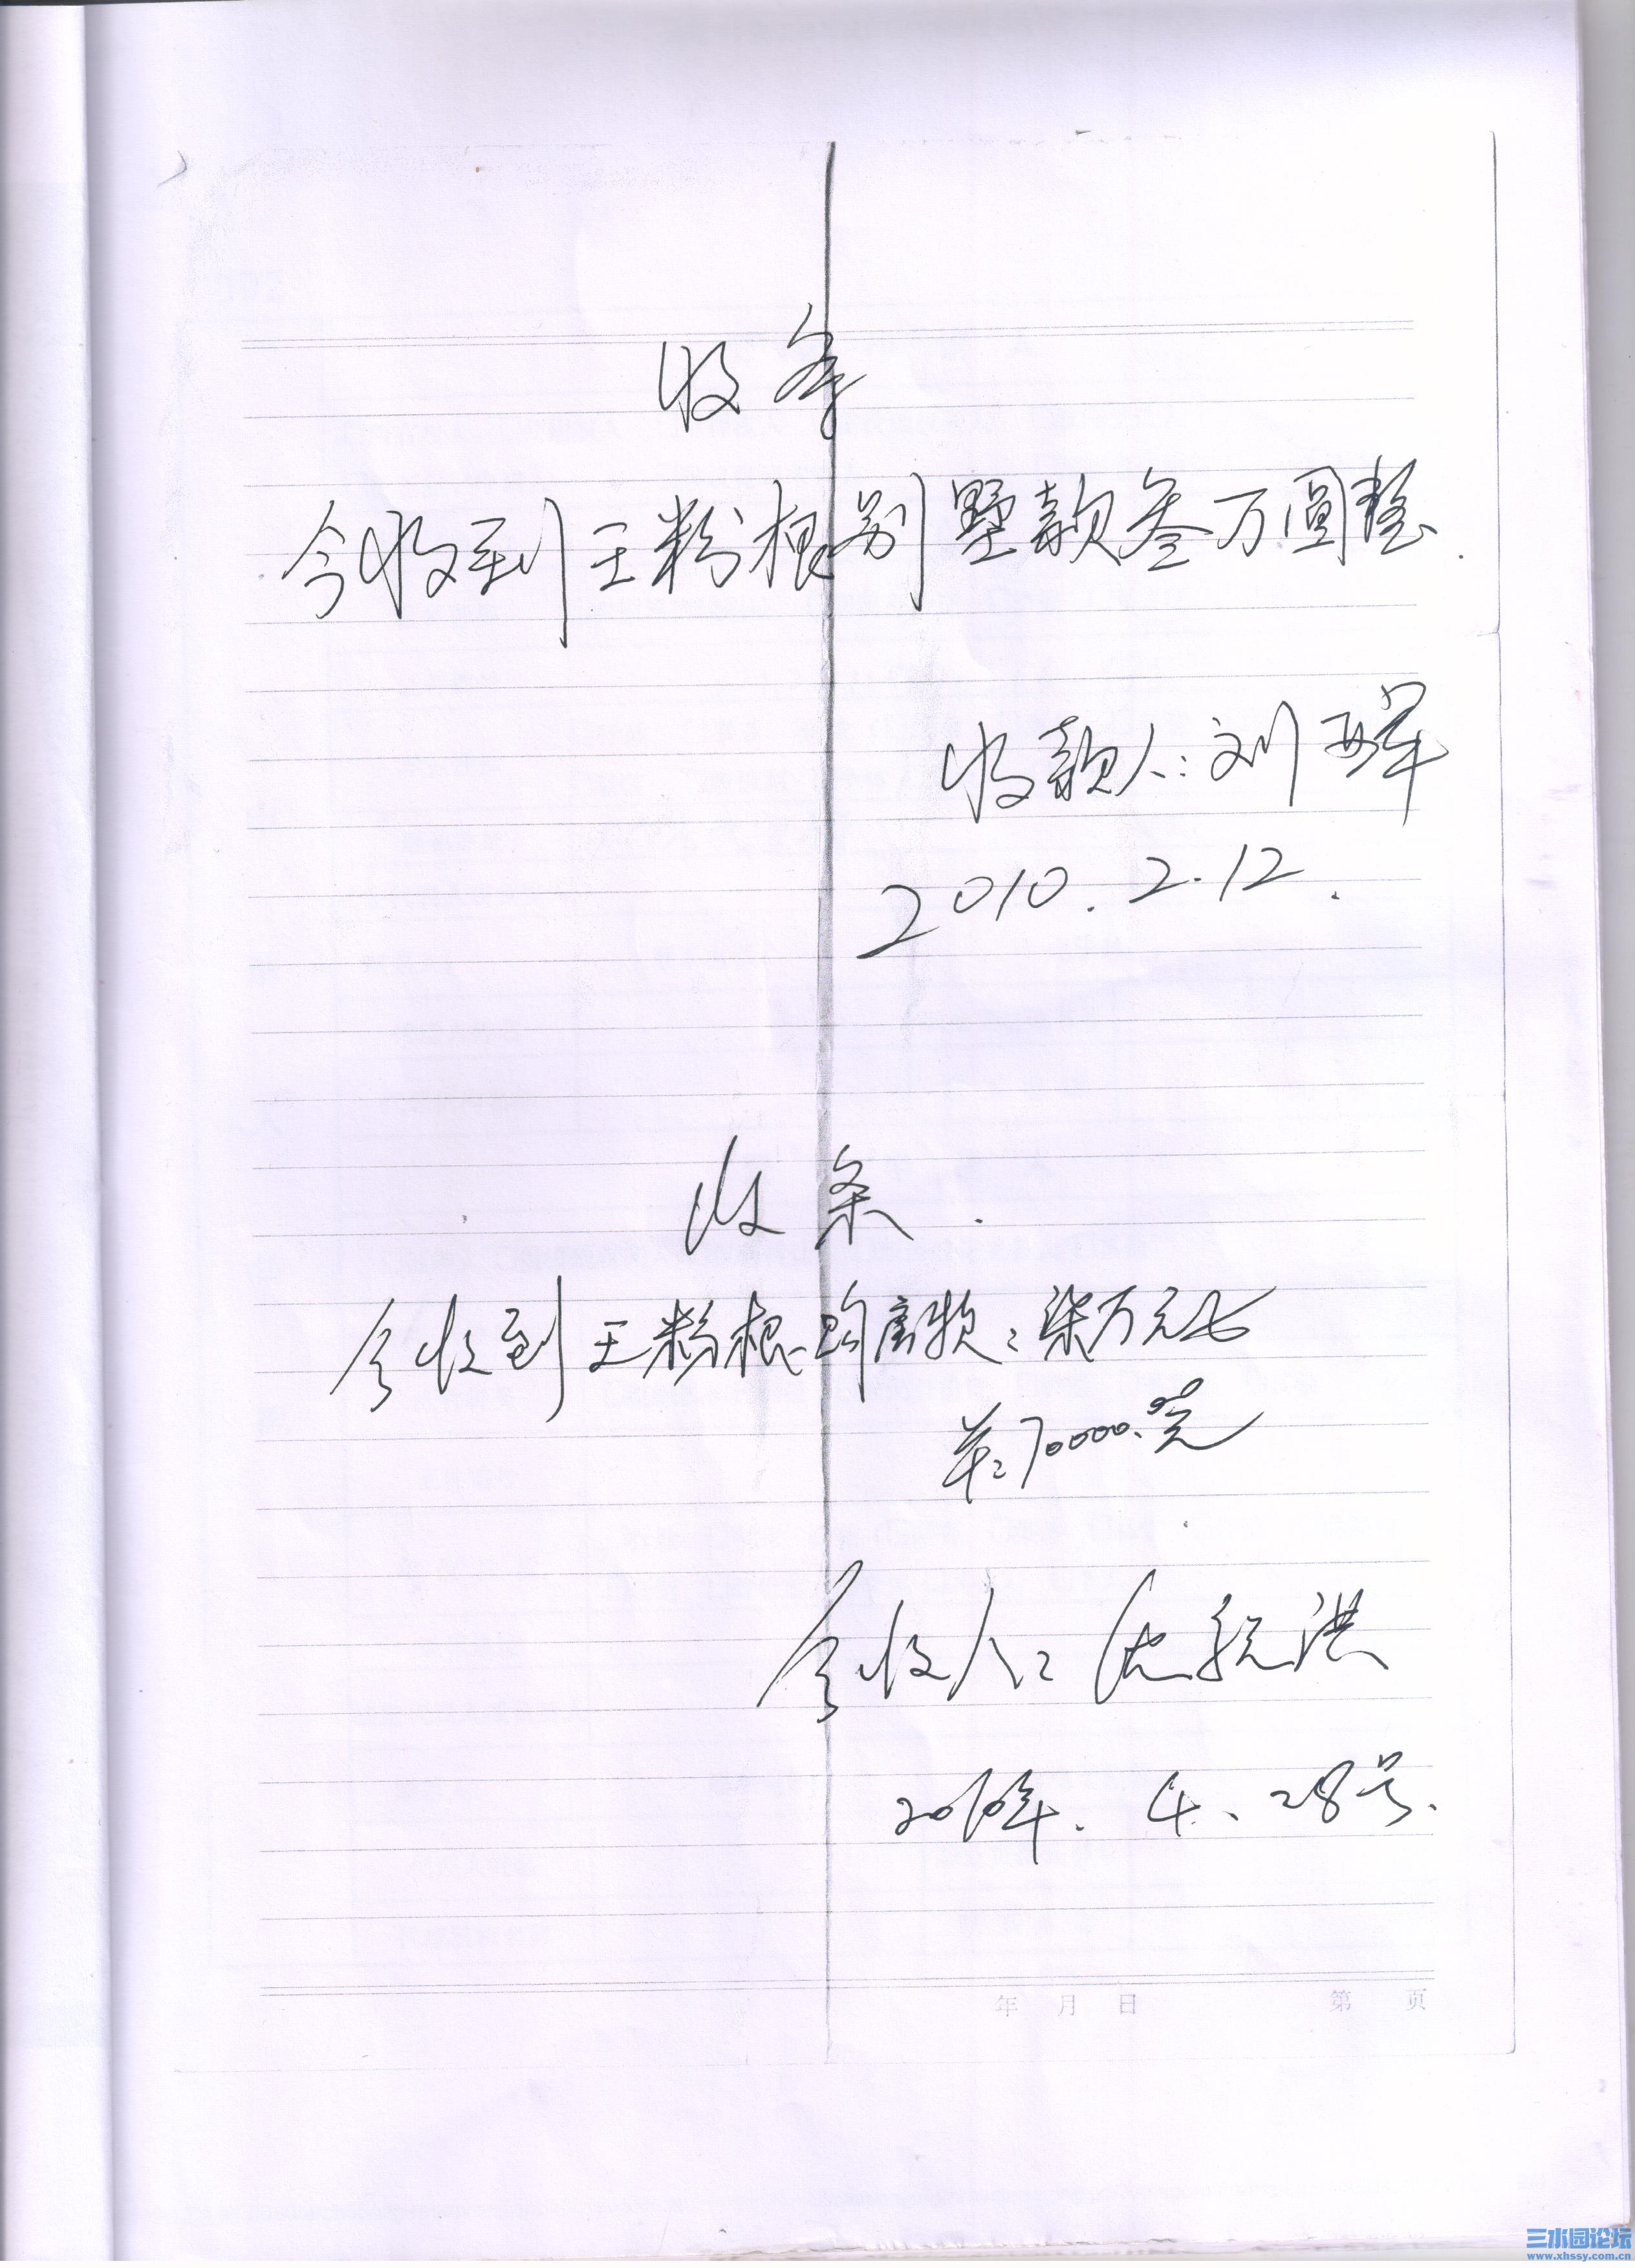 收条
今收到王粉根别墅款叁万圆整.
收款人:刘
2010.2.12.
收条.
今收到王粉根购房款:柒万元
70000.00元
今收人:沈 洪
2010年.4、28号.
年 月 日 第 页
三水园论坛
www.xhssy.com.cn